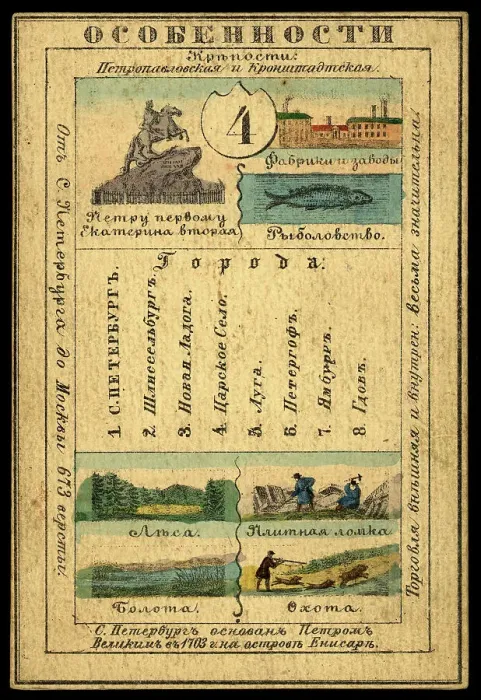 ОСОБЕННОСТИ
Крѣпости:
Петропавловская и Кронштадтская.
4
Фабрики и заводы
Петру первому
Екатерина вторая
Рыболовство.
Города:
1 С.ПЕТЕРБУРГЪ.
2. Шлиссельбургъ.
3. Новая Ладога.
4. Царское Село.
5. Луга.
6. Петергофъ.
7. Ямбургъ.
8. Гдовъ.
Лѣса.
Плитная ломка
Болота.
Охота.
С. Петербургъ основанъ Петромъ
Великимъ въ 1703 г. на островѣ Енисари.
Отъ С Петербурга до Москвы 673 версты.
Торговля внѣшняя и внутрен: весьма значительна!